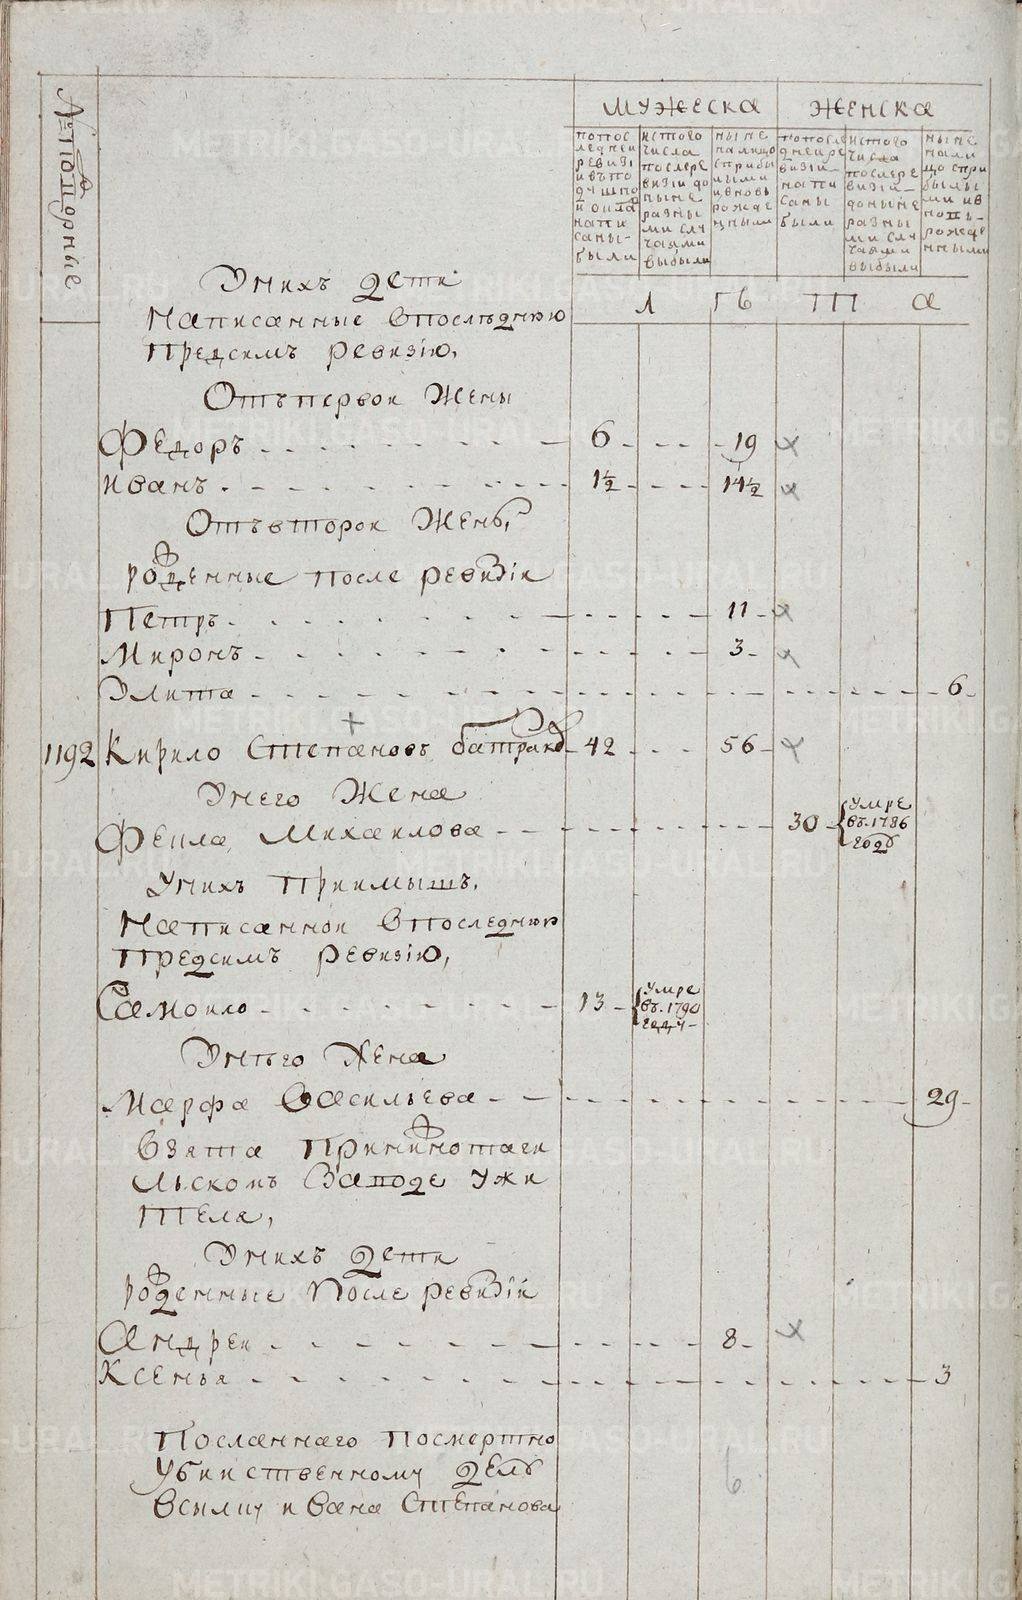 METRIKI.GASO-URAL.RU
№ подворные
МУЖЕСКА ЖЕНСКА
попос
ледней
ревизі
написаны
были
истого
числа
послере
визіи до
ныне
разны
ми слу
чаями
выбыли
ныне
налицо
сприбы
лыми
ивновь
рожде
нными
попосле
днейре
визіи
напи
саны
были
истого
числа
послере
визіи
доныне
разны
ми слу
чаями
выбыли
ныне
нали
цо спри
былы
ми ив
новь
рожде
нными
Унихъ дети
Написанные впоследнюю
Предсимъ ревизію,
Отъпервой Жены
Федоръ 6 19
иванъ 1½ 14½
Отъвторой Жены,
рожденные после ревизіи
Петръ 11
Миронъ 3
Улита 6
1192 Кирило Степановъ батраковъ 42 56
Унего Жена
Фекла Михаилова 30 Умре въ 1786 годе
Унихъ Приимышъ,
Написанной впоследнюю
Предсимъ ревизію,
Самоило 13 Умре въ 1790 году
Унего Жена
Марфа Васильева 29
Взята Принижнотаги
льскомъ Заводе ужи
теля,
Унихъ дети
рожденные после ревизіи
Андреи 8
Ксенья 3
Посланнаго Посмертно
Убийственному делу
Всылку ивана Степанова
6